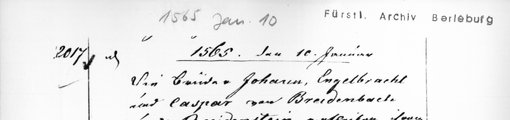 1565 Jan. 10
Fürstl. Archiv Berleburg
2017 1565. den 10. Januar
Die Brüder Johann, Engelbracht
und Caspar von Breidenbach
Breidenstein